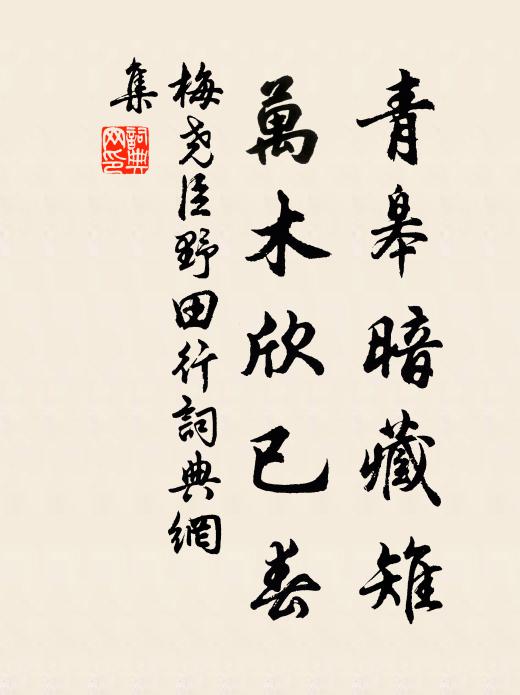 青皋暗藏雉
萬木欣已春
梅尧臣野田行詞典網
集
詞典網印